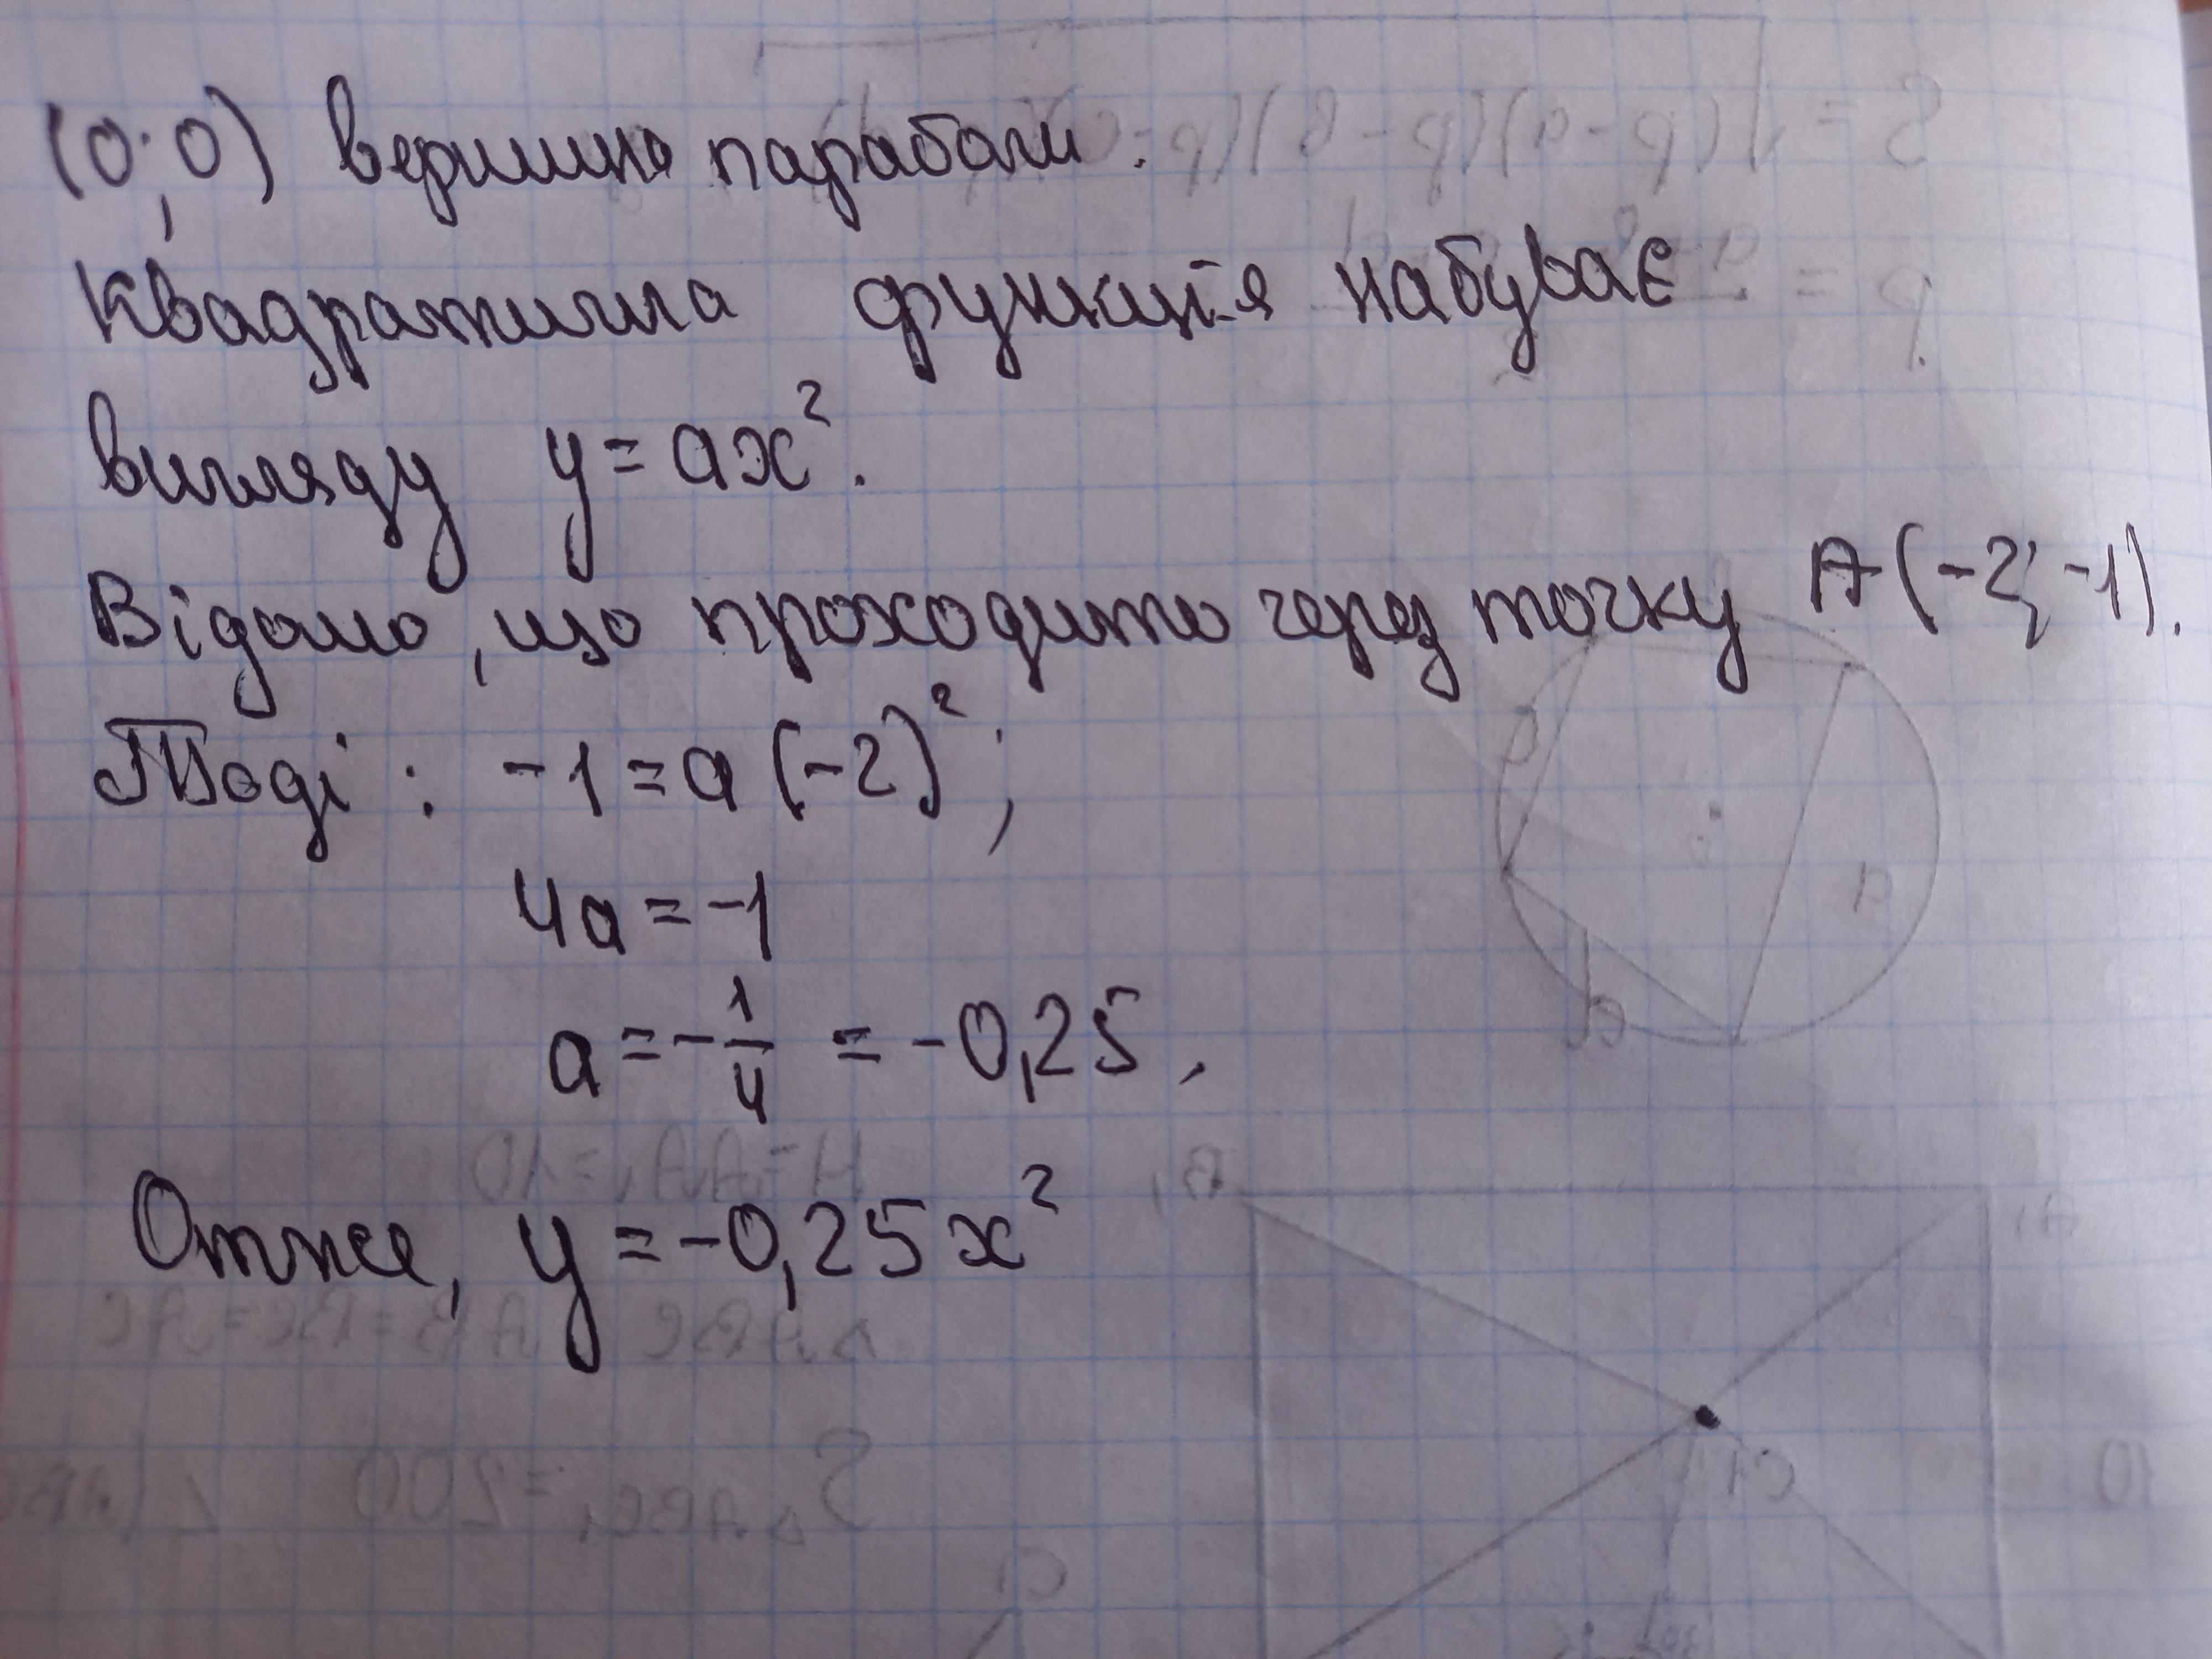 (0;0) вершина параболи.
Квадратична функція набуває
вигляду y = ax².
Відомо, що проходить через точку A(-2; -1).
Тоді: -1 = a(-2)²;
4a = -1
a = -1/4 = -0,25.
Отже, y = -0,25x²